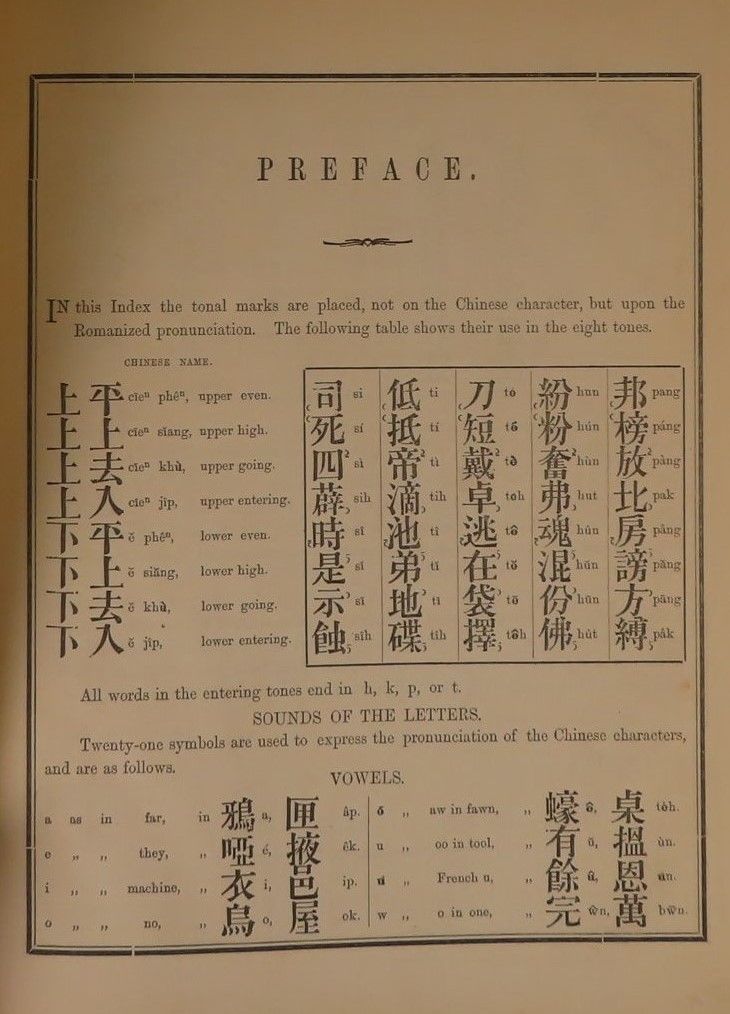 PREFACE.
IN this Index the tonal marks are placed, not on the Chinese character, but upon the
Romanized pronunciation. The following table shows their use in the eight tones.
CHINESE NAME.
上平 cieⁿ phêⁿ, upper even. 司 si 低 ti 刀 to 紛 hun 邦 pang
上上 cieⁿ siang, upper high. 死 sí 抵 tí 短 tó 粉 hún 榜 páng
上去 cieⁿ khù, upper going. 四 sì 帝 tì 戴 tò 奮 hùn 放 pàng
上入 cieⁿ jip, upper entering. 薜 sih 滴 tih 卓 toh 弗 hut 北 pak
下平 ĕ phêⁿ, lower even. 時 sî 池 tî 逃 tô 魂 hûn 房 pâng
下上 ĕ siăng, lower high. 是 sĭ 弟 tĭ 在 tŏ 混 hŭn 謗 păng
下去 ĕ khù, lower going. 示 sī 地 tī 袋 tō 份 hūn 方 pāng
下入 ĕ jip, lower entering. 蝕 sih 碟 tih 擇 tôh 佛 hût 縛 pâk
All words in the entering tones end in h, k, p, or t.
SOUNDS OF THE LETTERS.
Twenty-one symbols are used to express the pronunciation of the Chinese characters,
and are as follows.
VOWELS.
a as in far, in 鴉 a, 匣 âp. ó „ aw in fawn, „ 蠔 ô, 桌 tòh.
e „ „ they, „ 啞 é, 掖 êk. u „ oo in tool, „ 有 ŭ, 搵 ùn.
i „ „ machine, „ 衣 i, 邑 ip. ṳ „ French u, „ 餘 û, 恩 un.
o „ „ no, „ 烏 o, 屋 ok. w „ o in one, „ 完 ŵn, 萬 bwn.